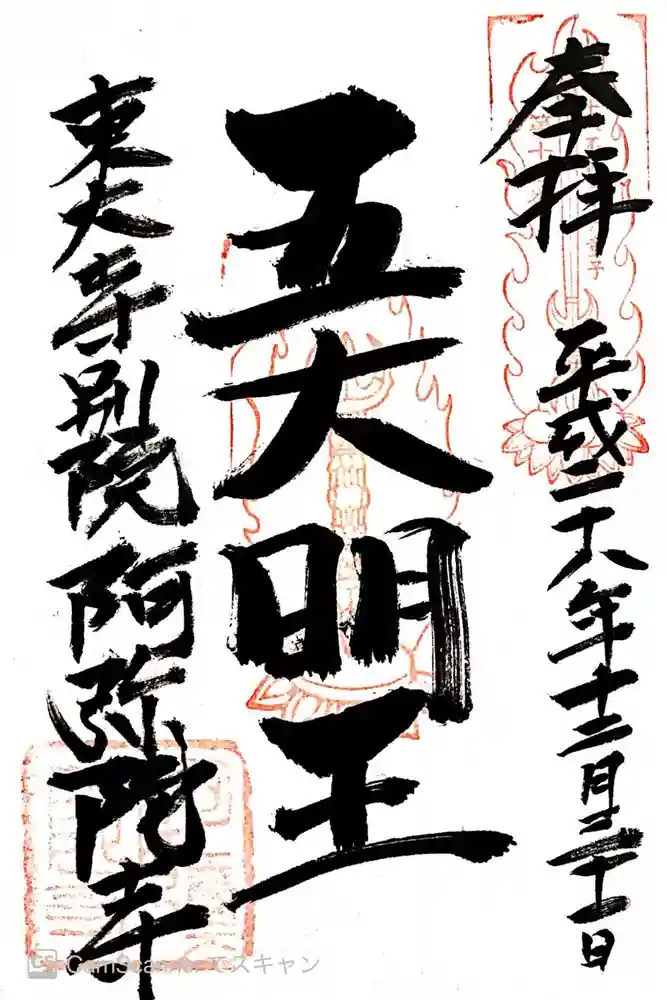 奉拝
平成二十八年十二月二十一日
五大明王
東大寺別院阿弥陀寺
CS CamScannerでスキャン